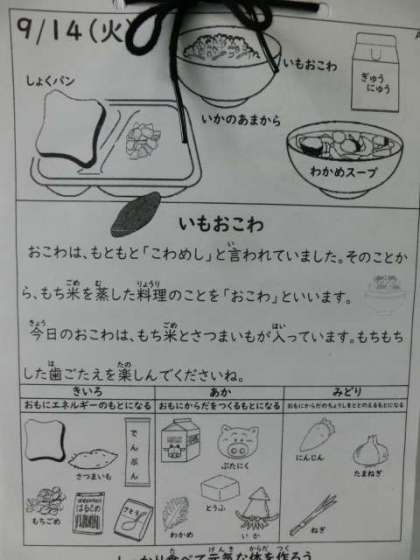 9/14(火)
しょくパン
いもおこわ
ぎゅう
にゅう
いかのあまから
わかめスープ
いもおこわ
おこわは、もともと「こわめし」と言われていました。そのことか
ら、もち米を蒸した料理のことを「おこわ」といいます。
今日のおこわは、もち米とさつまいもが入っています。もちもち
した歯ごたえを楽しんでくださいね。
きいろ あか みどり
おもにエネルギーのもとになる おもにからだをつくるもとになる おもにからだのちょうしをととのえるもとになる
でんぷん
さつまいも
もちごめ
はるさめ
さとう
ぎゅうにゅう
ぶたにく
とうふ
わかめ
いか
にんじん
たまねぎ
ねぎ
しっかり食べて元気な体を作ろう